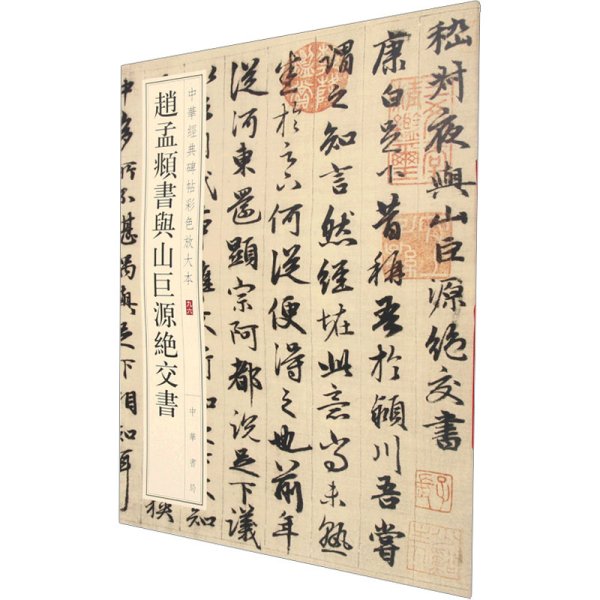 嵇叔夜與山巨源絕交書
康白足下昔稱吾於潁川吾嘗
謂之知言然經怪此意尚未熟
悉於足下何從便得之也前年
從河東還顯宗阿都說足下議
中華經典碑帖彩色放大本 九六
中華書局
趙孟頫書與山巨源絕交書
中多所不堪偶與足下相知耳